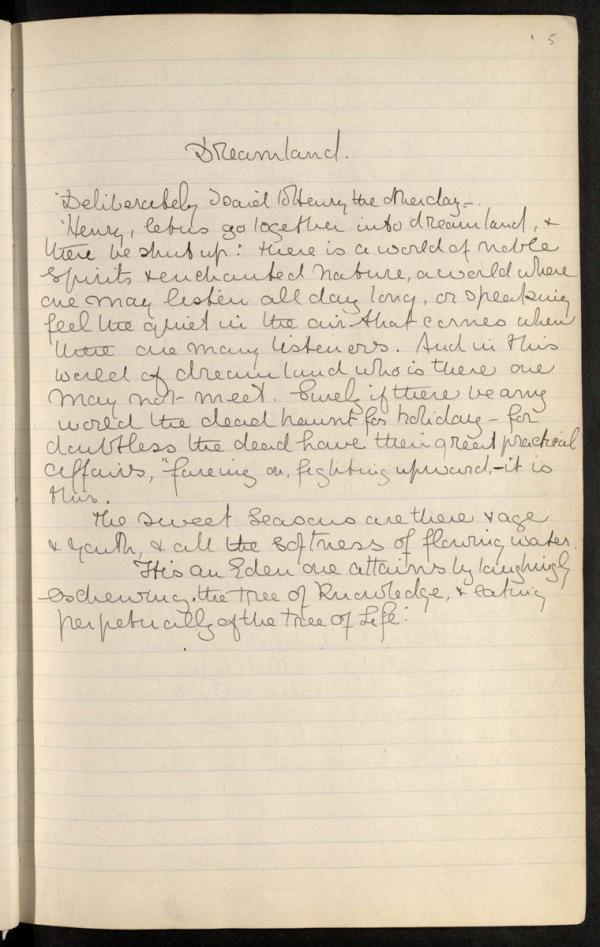 5
Dreamland.
"Deliberately I said to Henry the other day –
'Henry, let us go together into dreamland, &
there be shut up: there is a world of noble
spirits & enchanted nature, a world where
one may listen all day long, or speaking
feel the quiet in the air that comes when
there are many listeners. And in this
world of dreamland who is there one
may not meet. Surely if there be any
world the dead haunt for holiday – for
doubtless the dead have their great practical
affairs, "fareing on, fighting upward, – it is
this.
The sweet seasons are there & age
& youth, & all the softness of flowing water.
It is an Eden one attains by laughingly
eschewing the tree of Knowledge, & eating
perpetually of the tree of Life'.